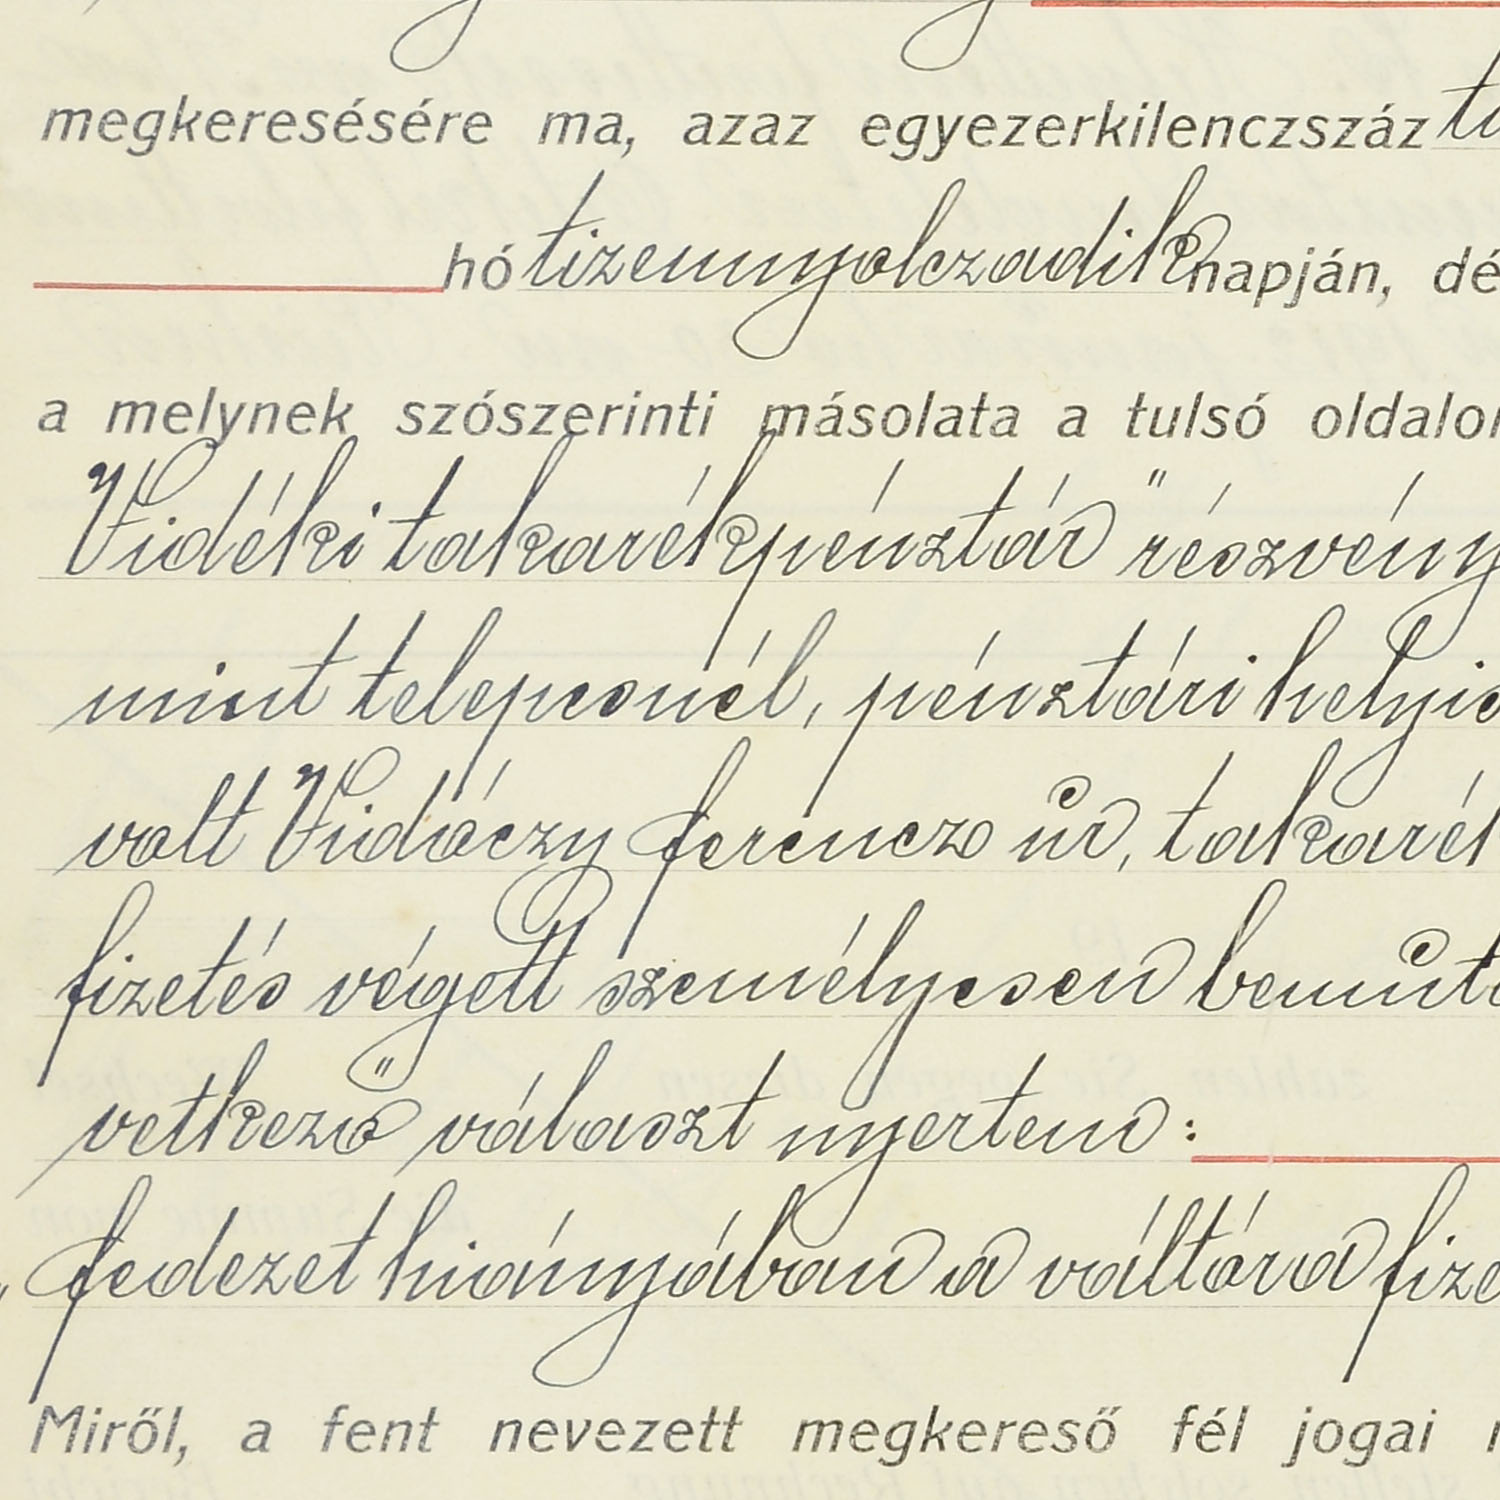 megkeresésére ma, azaz egyezerkilenczszáz
hó tizennyolczadik napján, dé
a melynek szószerinti másolata a tulsó oldalon
Vidéki takarékpénztár" részvény
mint telepesnél, pénztári helyis
volt Vidóczy Ferencz úr, takarék
fizetés végett személyesen bemuta
vetkező választ nyertem:
„Fedezet hiányában a váltóra fize
Miről, a fent nevezett megkereső fél jogai